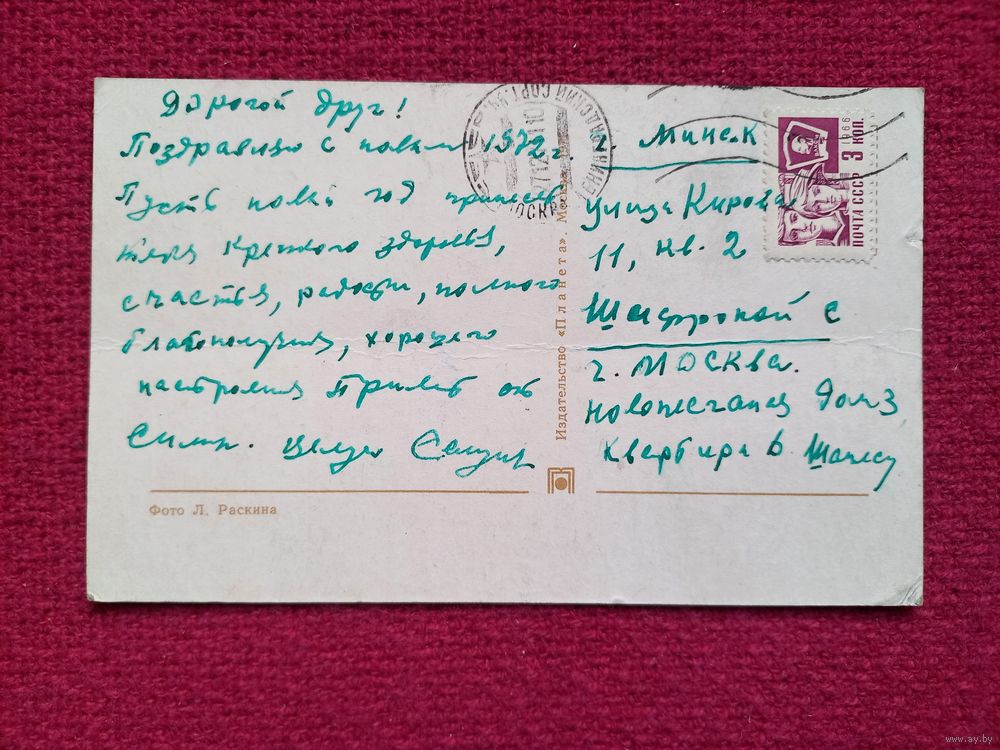 Дорогой друг!
Поздравляю с новым 1972 г.
Пусть новый год принесет
тебе крепкого здоровья,
счастья, радости, полного
благополучия, хорошего
настроения Привет от
Целую
г. Минск
улица Кирова
11, кв. 2
г. Москва.
Новопесчаная дом 3
квартира 6
ПОЧТА СССР 3 КОП.
1966
МОСКВА
Издательство «Планета». Москва
Фото Л. Раскина
www.ay.by